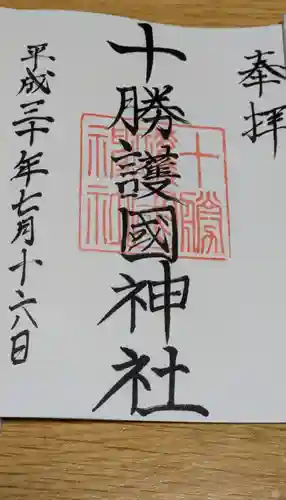 奉拝
十勝護國神社
平成三十年七月十六日
十勝護國神社